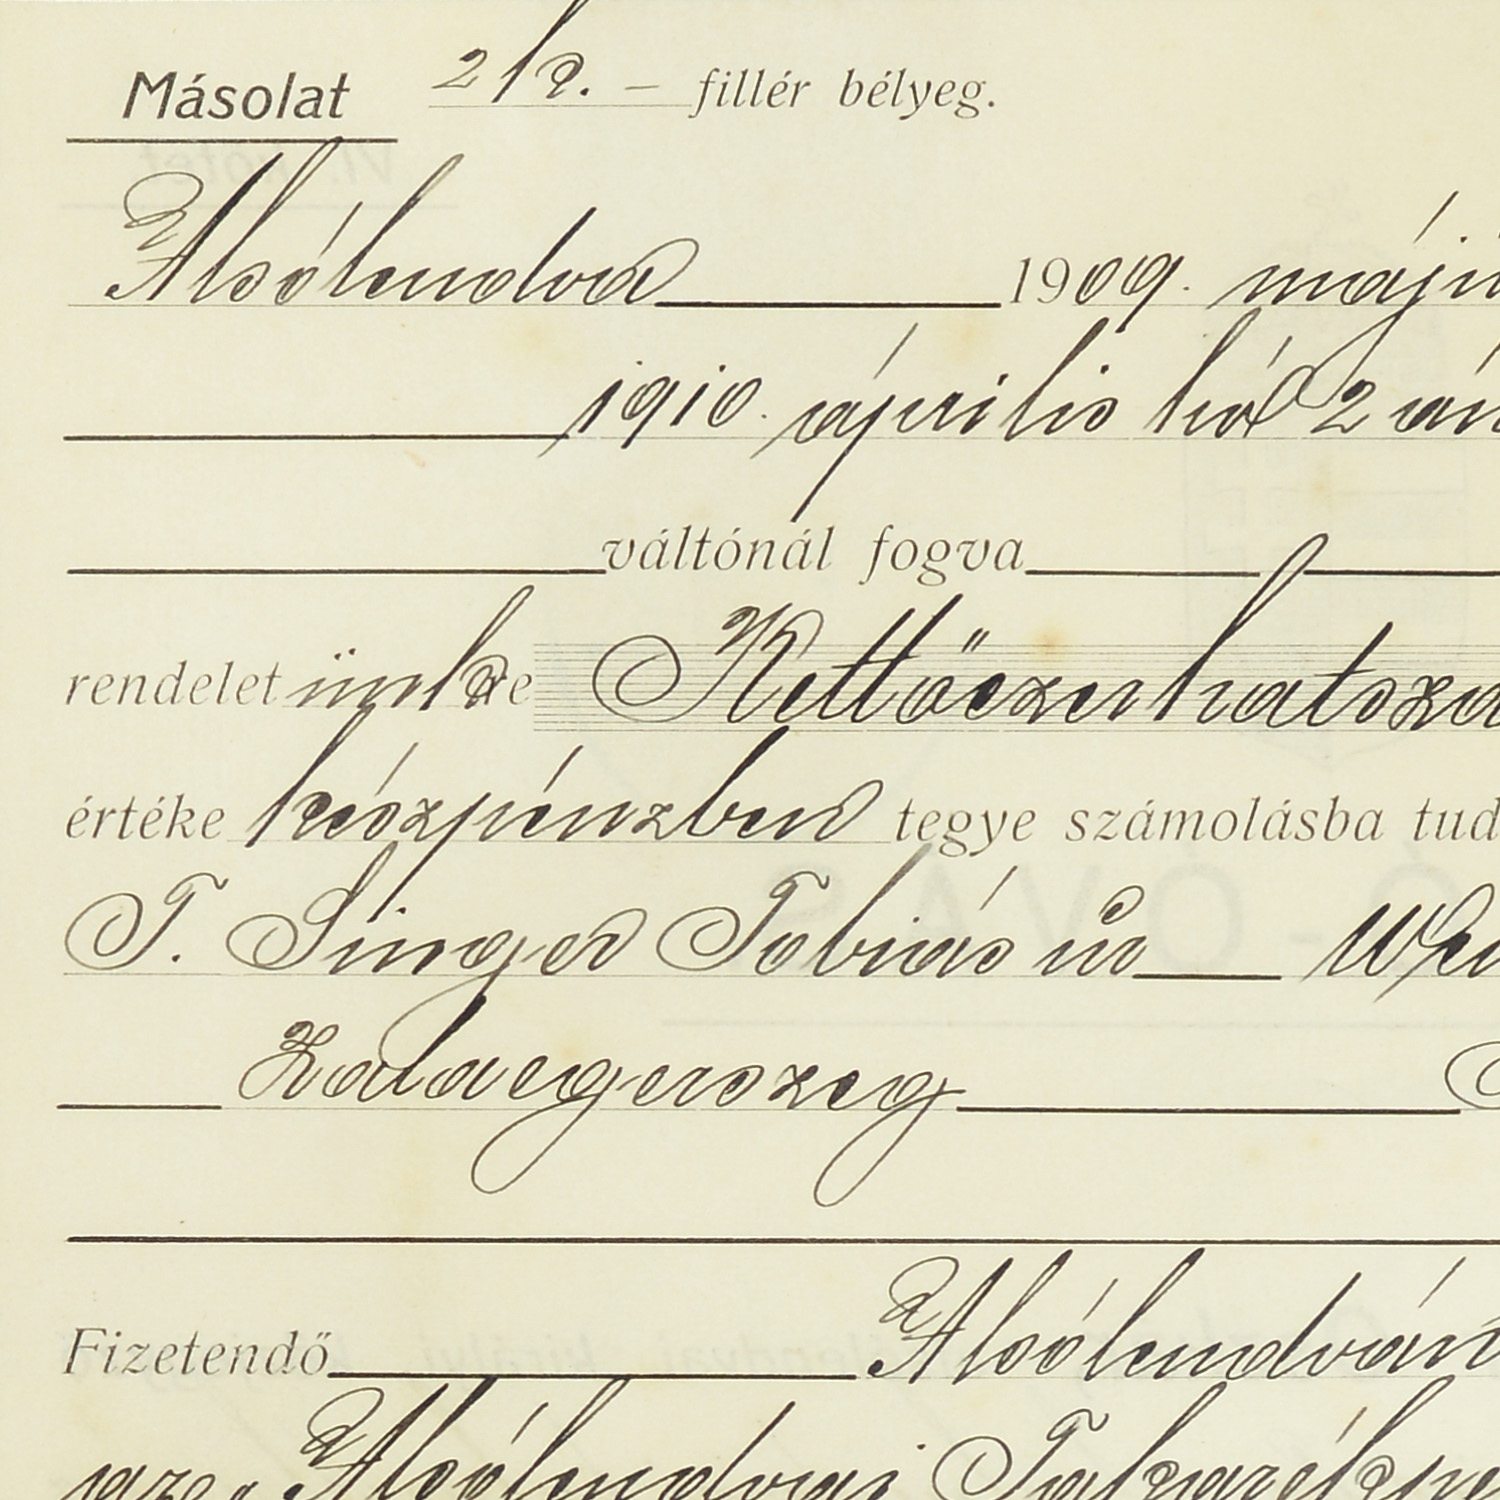 Másolat 2 k. – fillér bélyeg.
Alsólendva 1909. máju
1910. április hó 2 án
váltónál fogva
rendelet ünkre Kettőezerhatszá
értéke készpénzben tegye számolásba tud
T. Singer Tobiás úr
Zalaegerszeg
Fizetendő Alsólendván
Alsólendvai Takarékpé